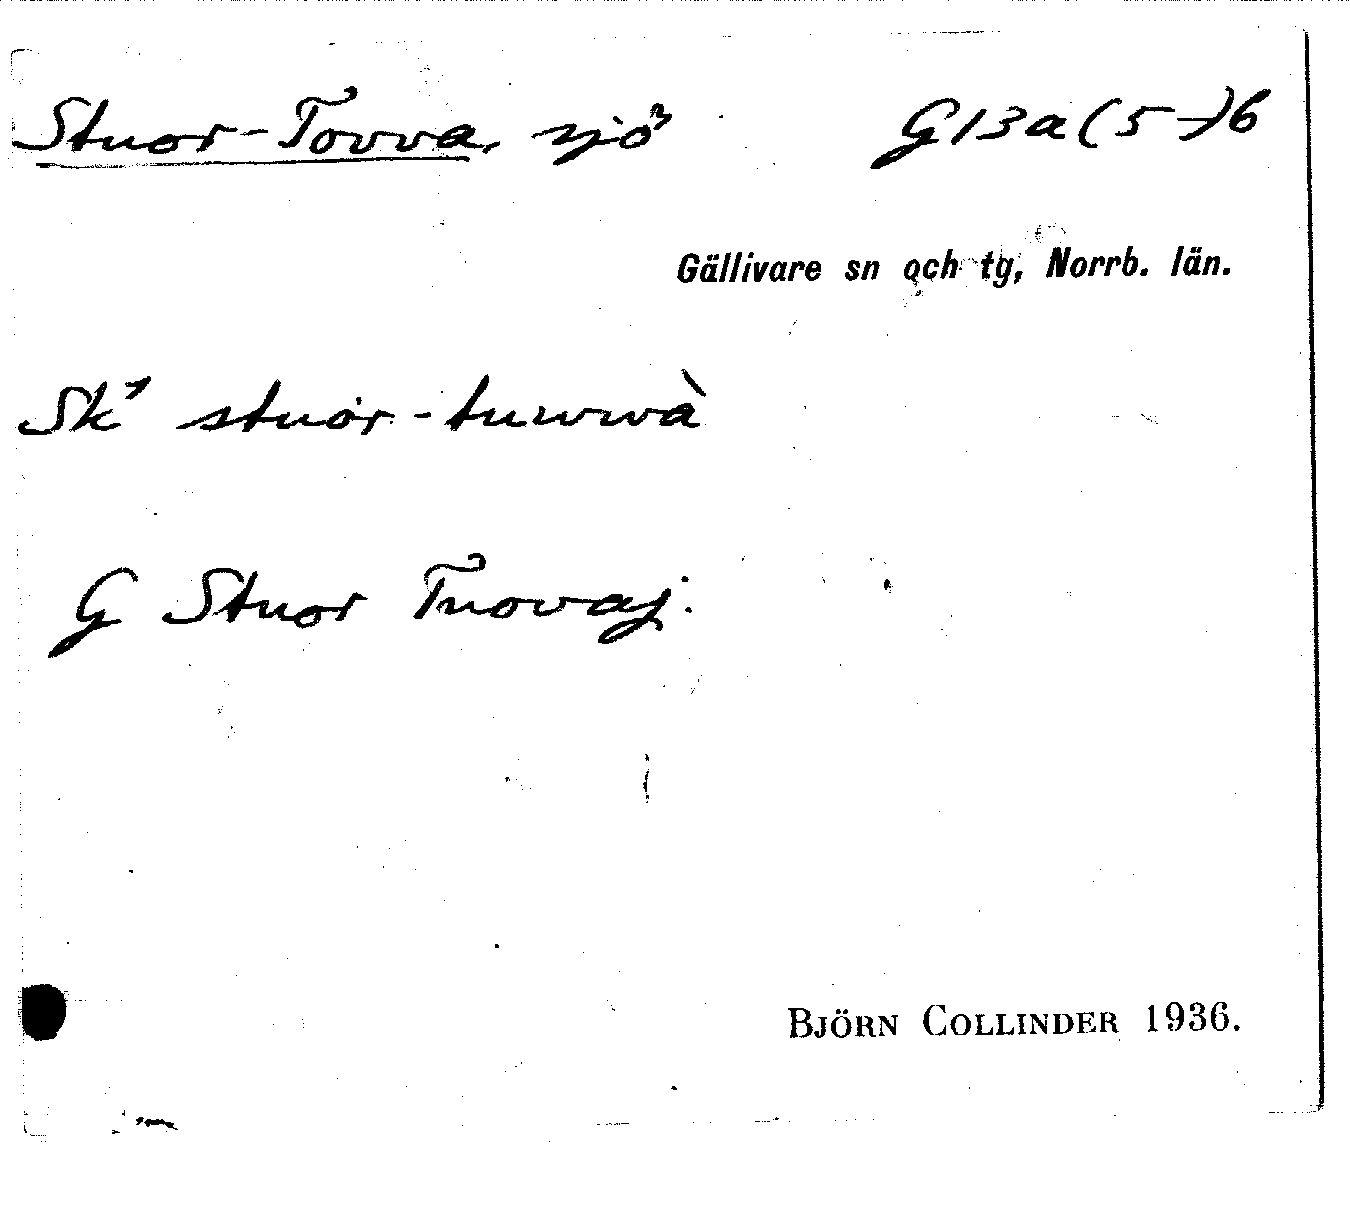 Stuor-Tovva, sjö G13a(5-)6
Gällivare sn och tg, Norrb. län.
Sk' stuȯr-tuwwà
G Stuor Tuovaj.
BJÖRN COLLINDER 1936.